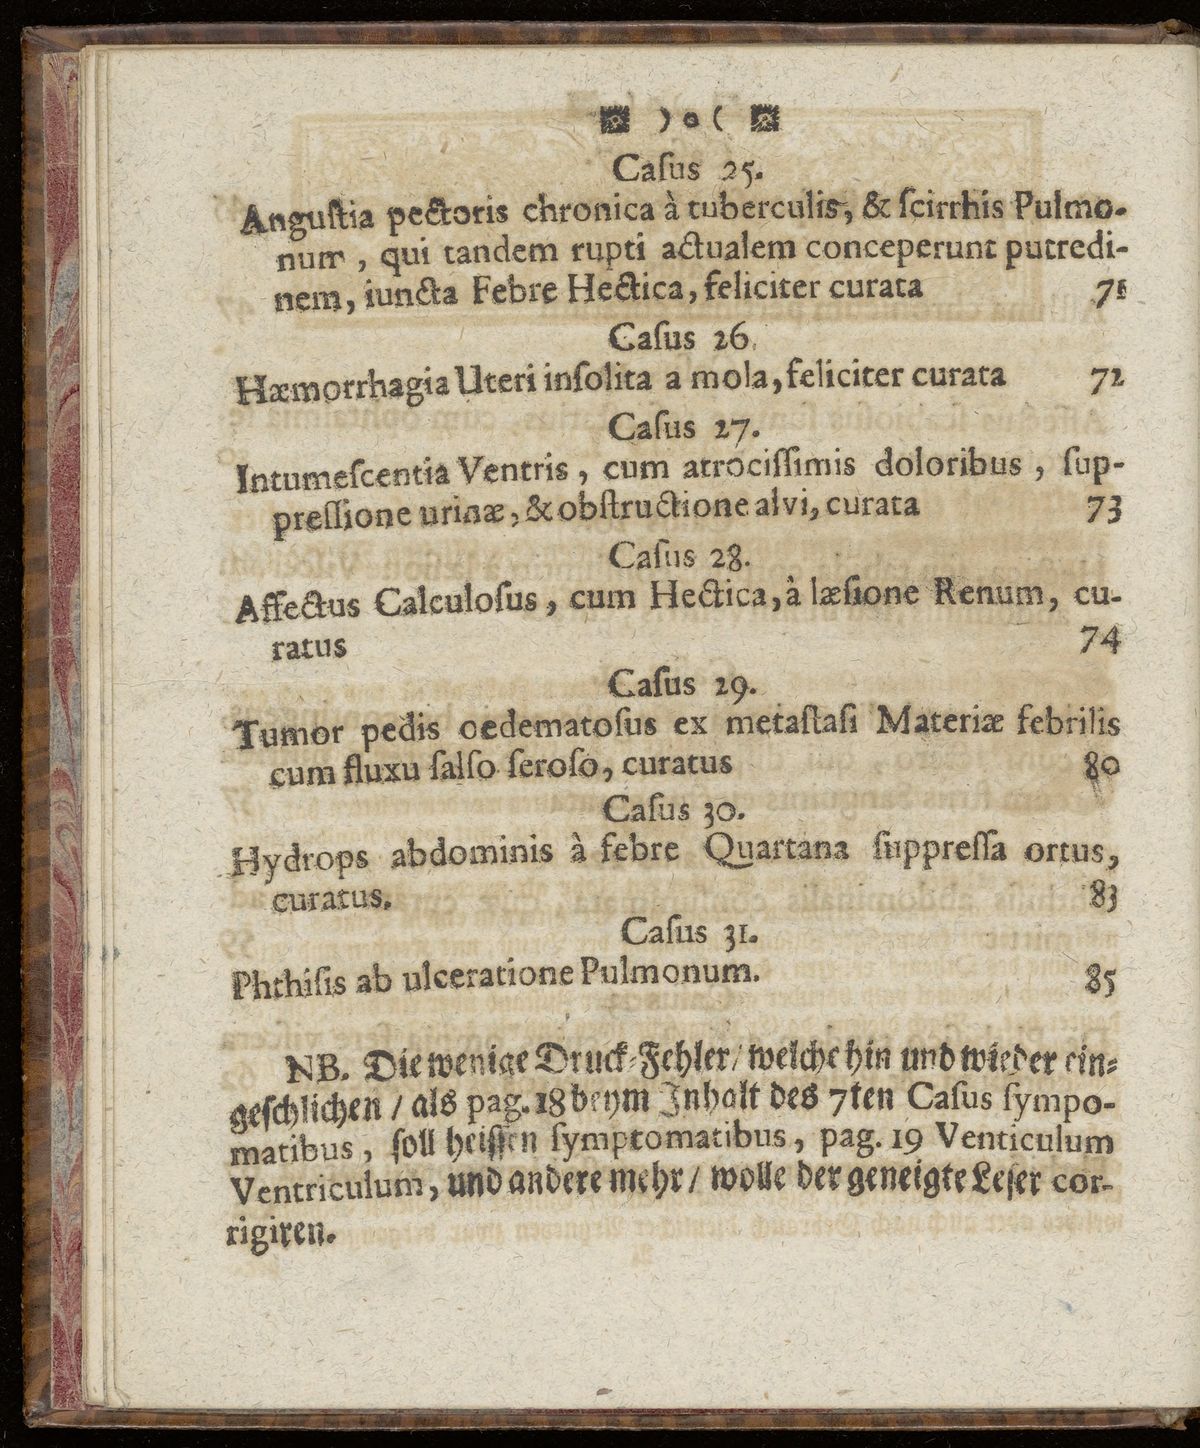 ) o (
Caſus 25.
Anguſtia pectoris chronica à tuberculis, & ſcirrhis Pulmo-
num, qui tandem rupti actualem conceperunt putredi-
nem, iuncta Febre Hectica, feliciter curata 71
Caſus 26.
Hæmorrhagia Uteri inſolita a mola, feliciter curata 72
Caſus 27.
Intumeſcentia Ventris, cum atrociſſimis doloribus, ſup-
preſſione urinæ, & obſtructione alvi, curata 73
Caſus 28.
Affectus Calculoſus, cum Hectica, à læſione Renum, cu-
ratus 74
Caſus 29.
Tumor pedis oedematoſus ex metaſtaſi Materiæ febrilis
cum fluxu ſalſo ſeroſo, curatus 80
Caſus 30.
Hydrops abdominis à febre Quartana ſuppreſſa ortus,
curatus. 83
Caſus 31.
Phthiſis ab ulceratione Pulmonum. 85
NB. Die wenige Druck-Fehler/ welche hin und wieder ein-
geſchlichen / als pag. 18 beym Inhalt des 7ten Caſus ſympo-
matibus, ſoll heiſſen ſymptomatibus, pag. 19 Venticulum
Ventriculum, und andere mehr / wolle der geneigte Leſer cor-
rigiren.